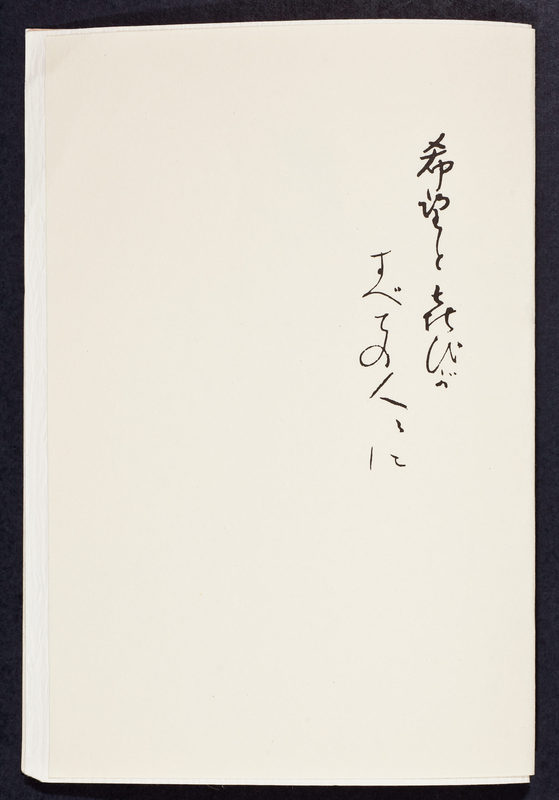 希望と㐂びが
すべての人々に